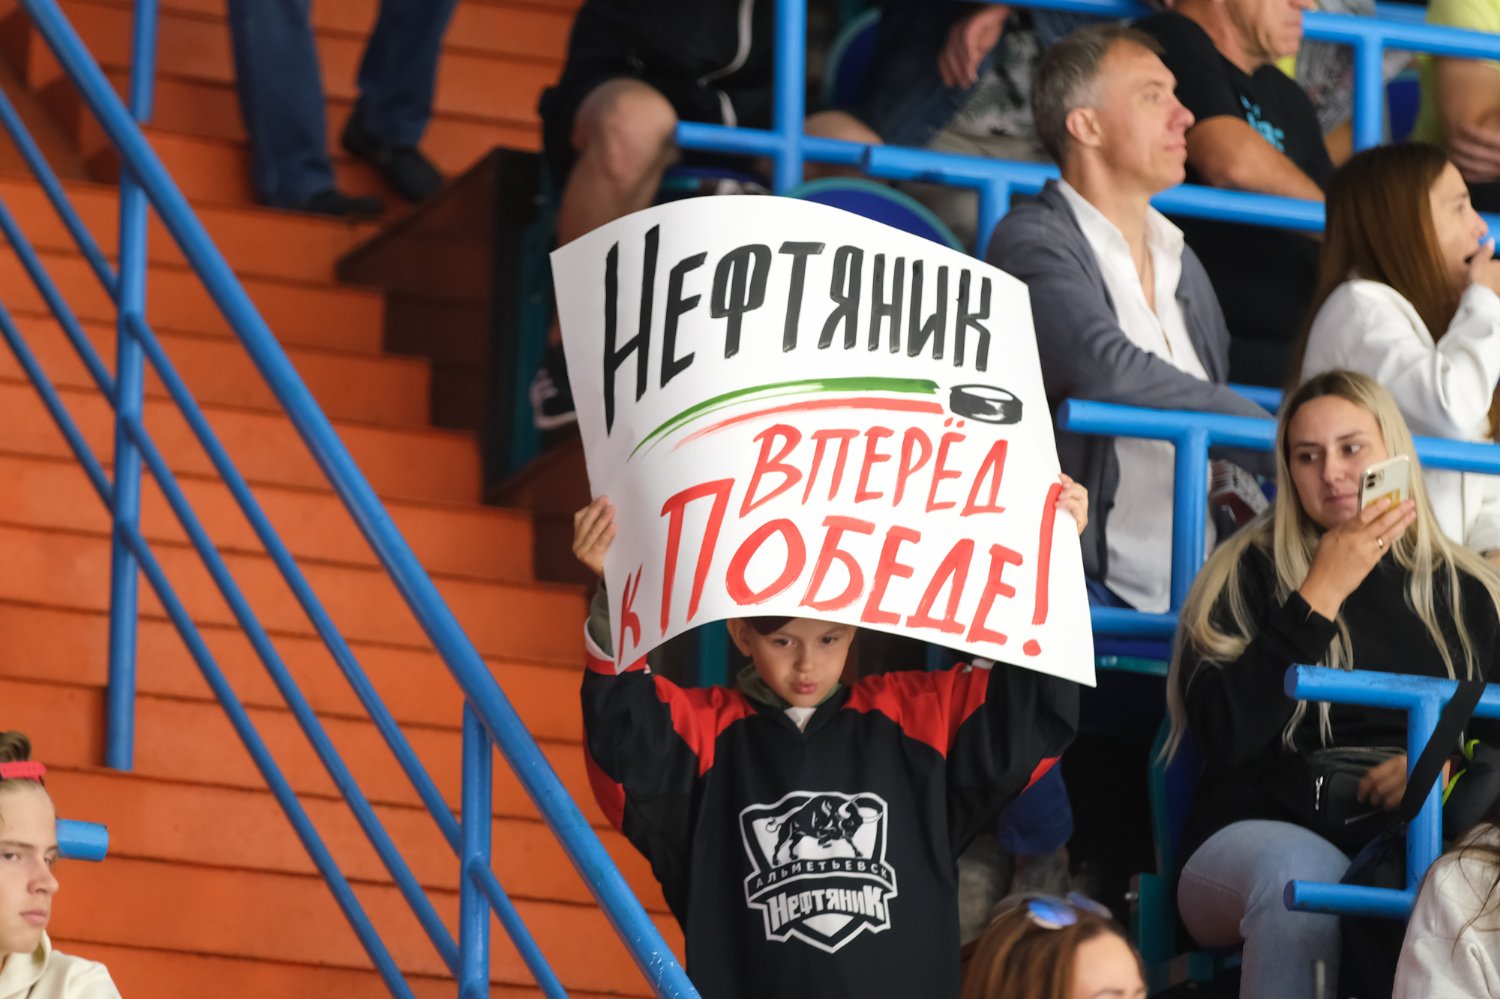 НЕФТЯНИК
ВПЕРЁД
К ПОБЕДЕ!
АЛЬМЕТЬЕВСК
НЕФТЯНИК